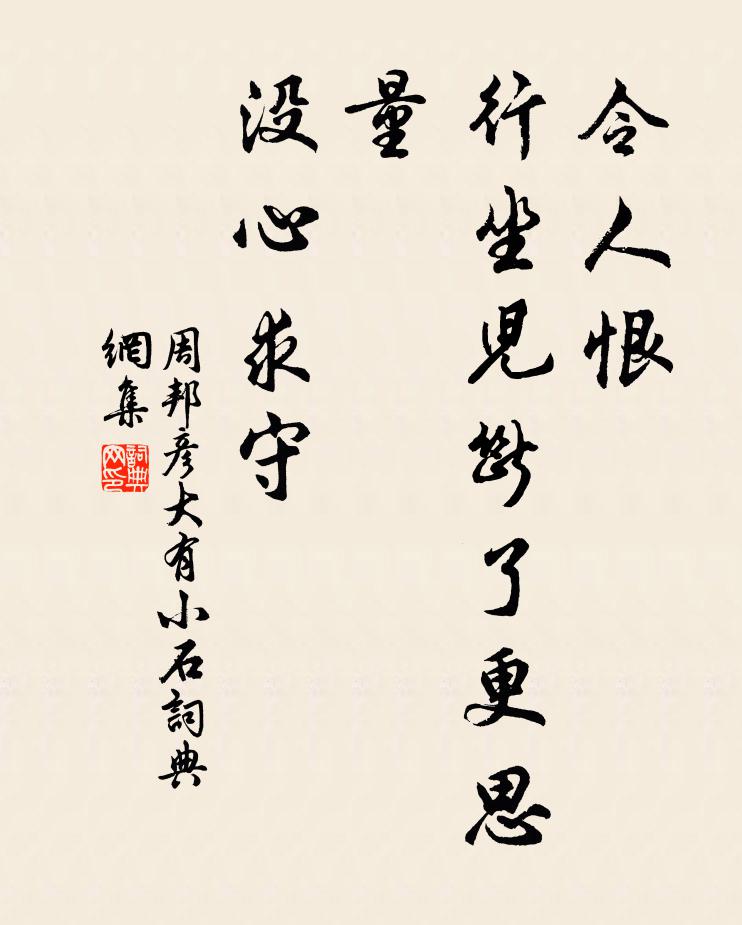 令人恨
行坐児斷了更思
量
没心求守
周邦彦大有小石詞典
網集
詞典
网印